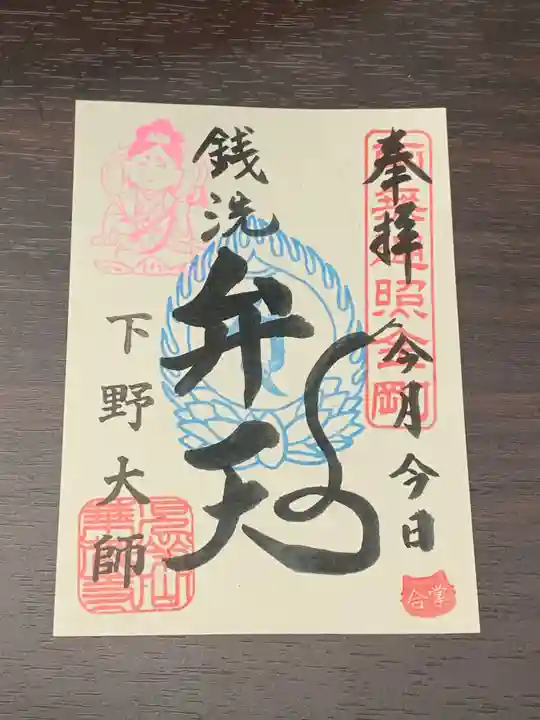 奉拝
今月今日
南無遍照金剛
銭洗
弁天
下野大師
合掌